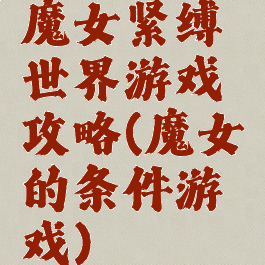 魔女紧缚
世界游戏
攻略(魔女
的条件游
戏)